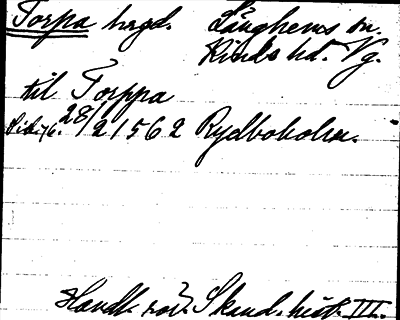 Torpa hrgd. Länghems sn.
Kinds hd. Vg.
til Torppa
28/2 1562 Rydboholm.
Handl. rör. Skand. hist. III.